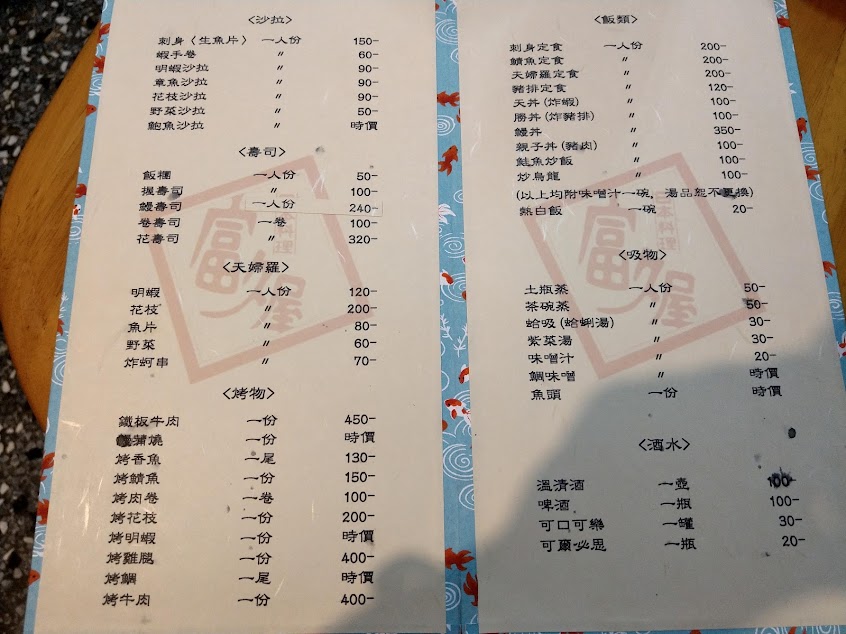 <沙拉>
刺身(生魚片) 一人份 150-
蝦手卷 〃 60-
明蝦沙拉 〃 90-
章魚沙拉 〃 90-
花枝沙拉 〃 90-
野菜沙拉 〃 50-
鮑魚沙拉 〃 時價
<壽司>
飯糰 一人份 50-
握壽司 〃 100-
鰻壽司 一人份 240-
卷壽司 一卷 100-
花壽司 〃 320-
<天婦羅>
明蝦 一人份 120-
花枝 〃 200-
魚片 〃 80-
野菜 〃 60-
炸蚵串 〃 70-
<烤物>
鐵板牛肉 一份 450-
蒲燒 一份 時價
烤香魚 一尾 130-
烤鯖魚 一份 150-
烤肉卷 一卷 100-
烤花枝 一份 200-
烤明蝦 一份 時價
烤雞腿 一份 400-
烤鯛 一尾 時價
烤牛肉 一份 400-
<飯類>
刺身定食 一人份 200-
鯖魚定食 〃 200-
天婦羅定食 〃 200-
豬排定食 〃 120-
天丼(炸蝦) 〃 100-
勝丼(炸豬排) 〃 100-
鰻丼 〃 350-
親子丼(豬肉) 〃 100-
鮭魚炒飯 〃 100-
炒烏龍 〃 100-
(以上均附味噌汁一碗, 湯品恕不更換)
熱白飯 一碗 20-
<吸物>
土瓶蒸 一人份 50-
茶碗蒸 〃 50-
蛤吸(蛤蜊湯) 〃 30-
紫菜湯 〃 30-
味噌汁 〃 20-
鯛味噌 〃 時價
魚頭 一份 時價
<酒水>
溫清酒 一壺 100-
啤酒 一瓶 100-
可口可樂 一罐 30-
可爾必思 一瓶 20-
日本料理
富屋